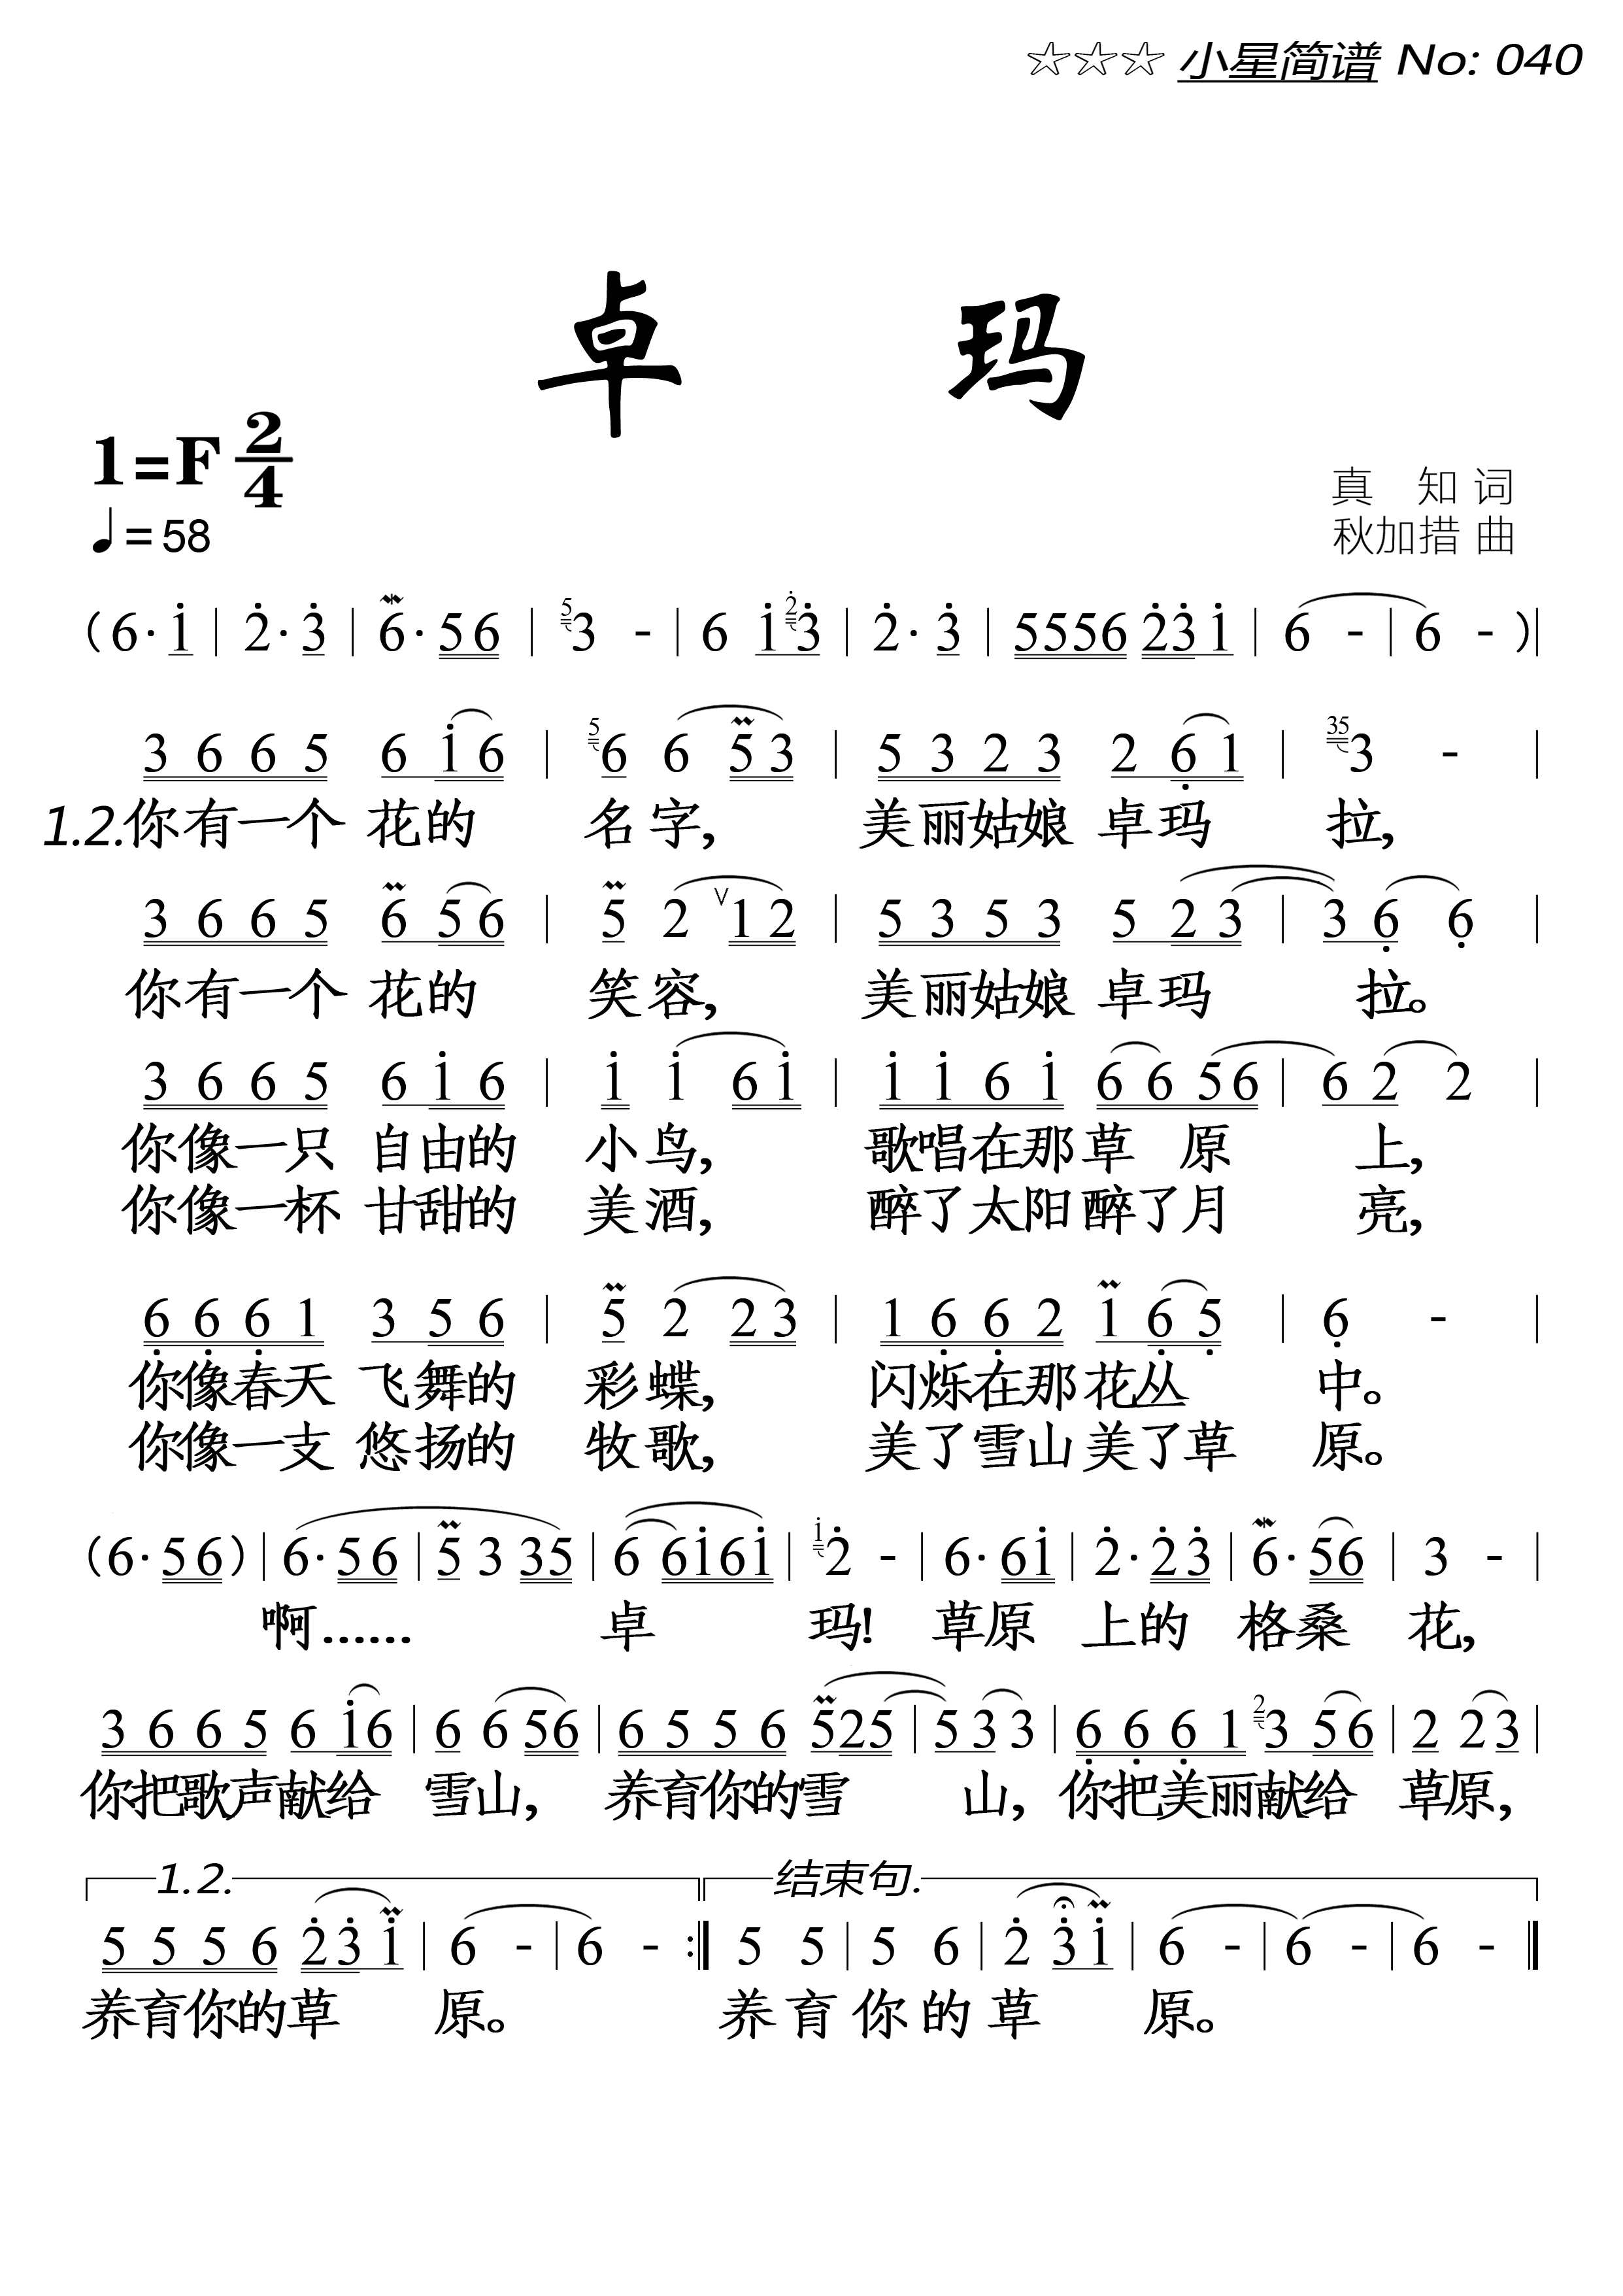 ☆☆☆ 小星简谱 No: 040
卓 玛
1=F 2/4
♩=58
真 知 词
秋加措 曲
(6· i | 2· 3 | 6· 56 | 5 3 - | 6 i 2 3 | 2· 3 | 5556 23 i | 6 - | 6 - )|
3 6 6 5 6 i 6 | 5 6 6 5 3 | 5 3 2 3 2 6 1 | 35 3 - |
1.2.你有一个 花的 名字, 美丽姑娘 卓玛 拉,
3 6 6 5 6 5 6 | 5 2 ∨ 1 2 | 5 3 5 3 5 2 3 | 3 6 6 |
你有一个 花的 笑容, 美丽姑娘 卓玛 拉。
3 6 6 5 6 i 6 | i i 6 i | i i 6 i 6 6 5 6 | 6 2 2 |
你像一只 自由的 小鸟, 歌唱在那草 原 上,
你像一杯 甘甜的 美酒, 醉了太阳醉了月 亮,
6 6 6 1 3 5 6 | 5 2 2 3 | 1 6 6 2 1 6 5 | 6 - |
你像春天 飞舞的 彩蝶, 闪烁在那花丛 中。
你像一支 悠扬的 牧歌, 美了雪山美了草 原。
(6· 56)| 6· 56 | 5 3 35 | 6 6i6i | i 2 - | 6· 6i | 2· 23 | 6· 56 | 3 - |
啊…… 卓 玛! 草原 上的 格桑 花,
3 6 6 5 6 i6 | 6 6 56 | 6 5 5 6 525 | 5 3 3 | 6 6 6 1 2 3 56 | 2 2 3 |
你把歌声献给 雪山, 养育你的雪 山, 你把美丽献给 草原,
1.2. 结束句.
5 5 5 6 23 i | 6 - | 6 - :‖ 5 5 | 5 6 | 2 3 i | 6 - | 6 - | 6 - ‖
养育你的草 原。 养 育 你 的 草 原。